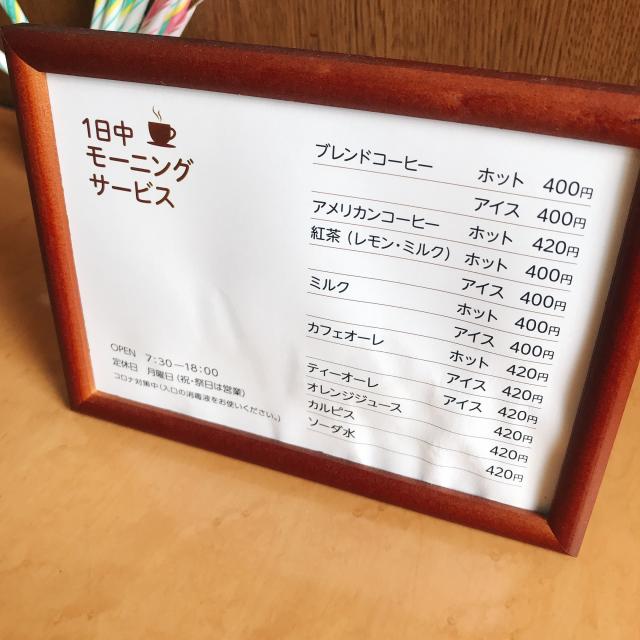 1日中
モーニング
サービス
ブレンドコーヒー ホット 400円
アイス 400円
アメリカンコーヒー ホット 420円
紅茶（レモン・ミルク） ホット 400円
アイス 400円
ミルク ホット 400円
アイス 400円
カフェオーレ ホット 420円
アイス 420円
ティーオーレ アイス 420円
オレンジジュース 420円
カルピス 420円
ソーダ水 420円
OPEN 7:30－18:00
定休日 月曜日（祝・祭日は営業）
コロナ対策中（入口の消毒液をお使いください。）